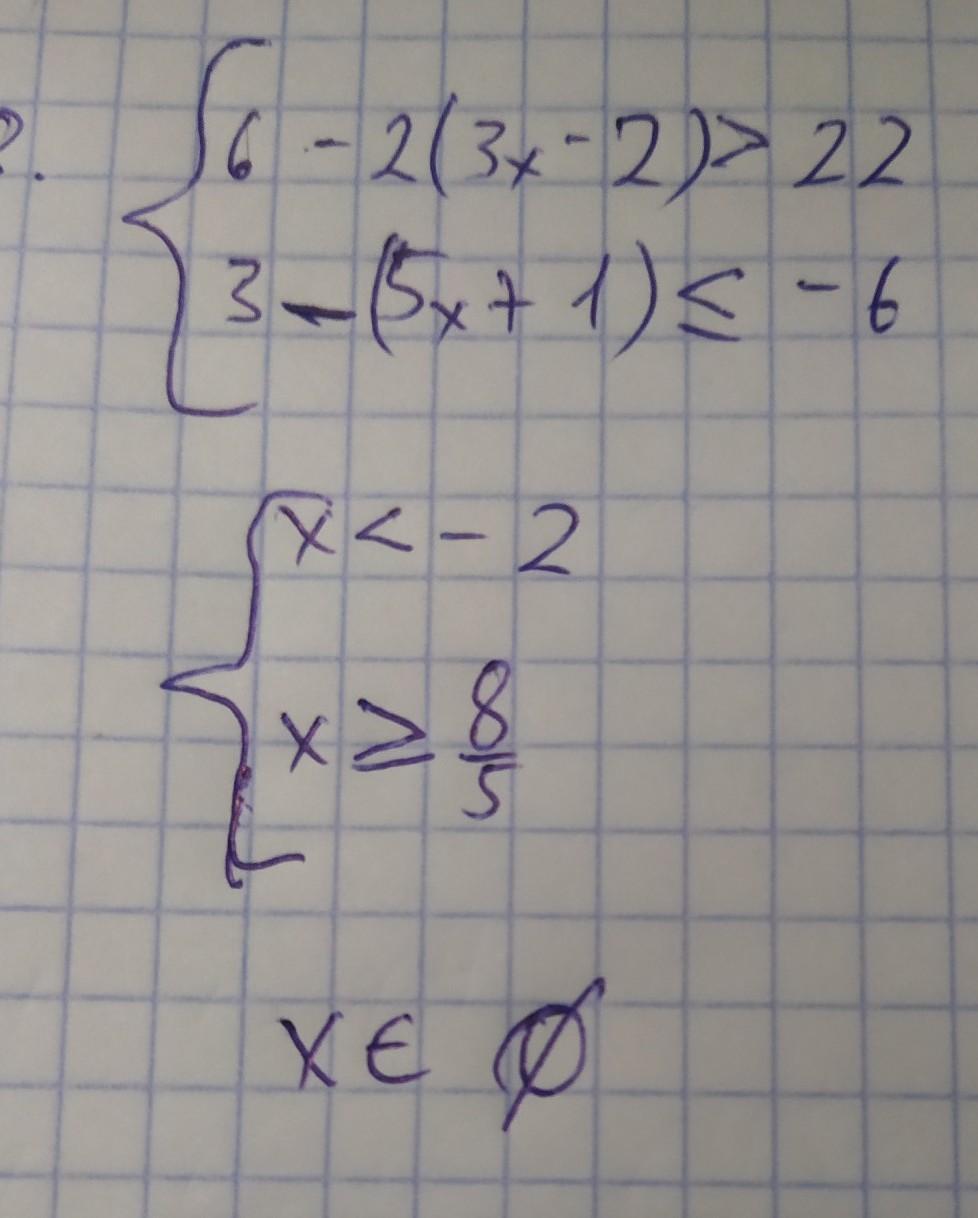 2. { 6 - 2(3x - 2) > 22
3 - (5x + 1) ≤ - 6
{ x < - 2
x ≥ 8/5
x ∈ ∅